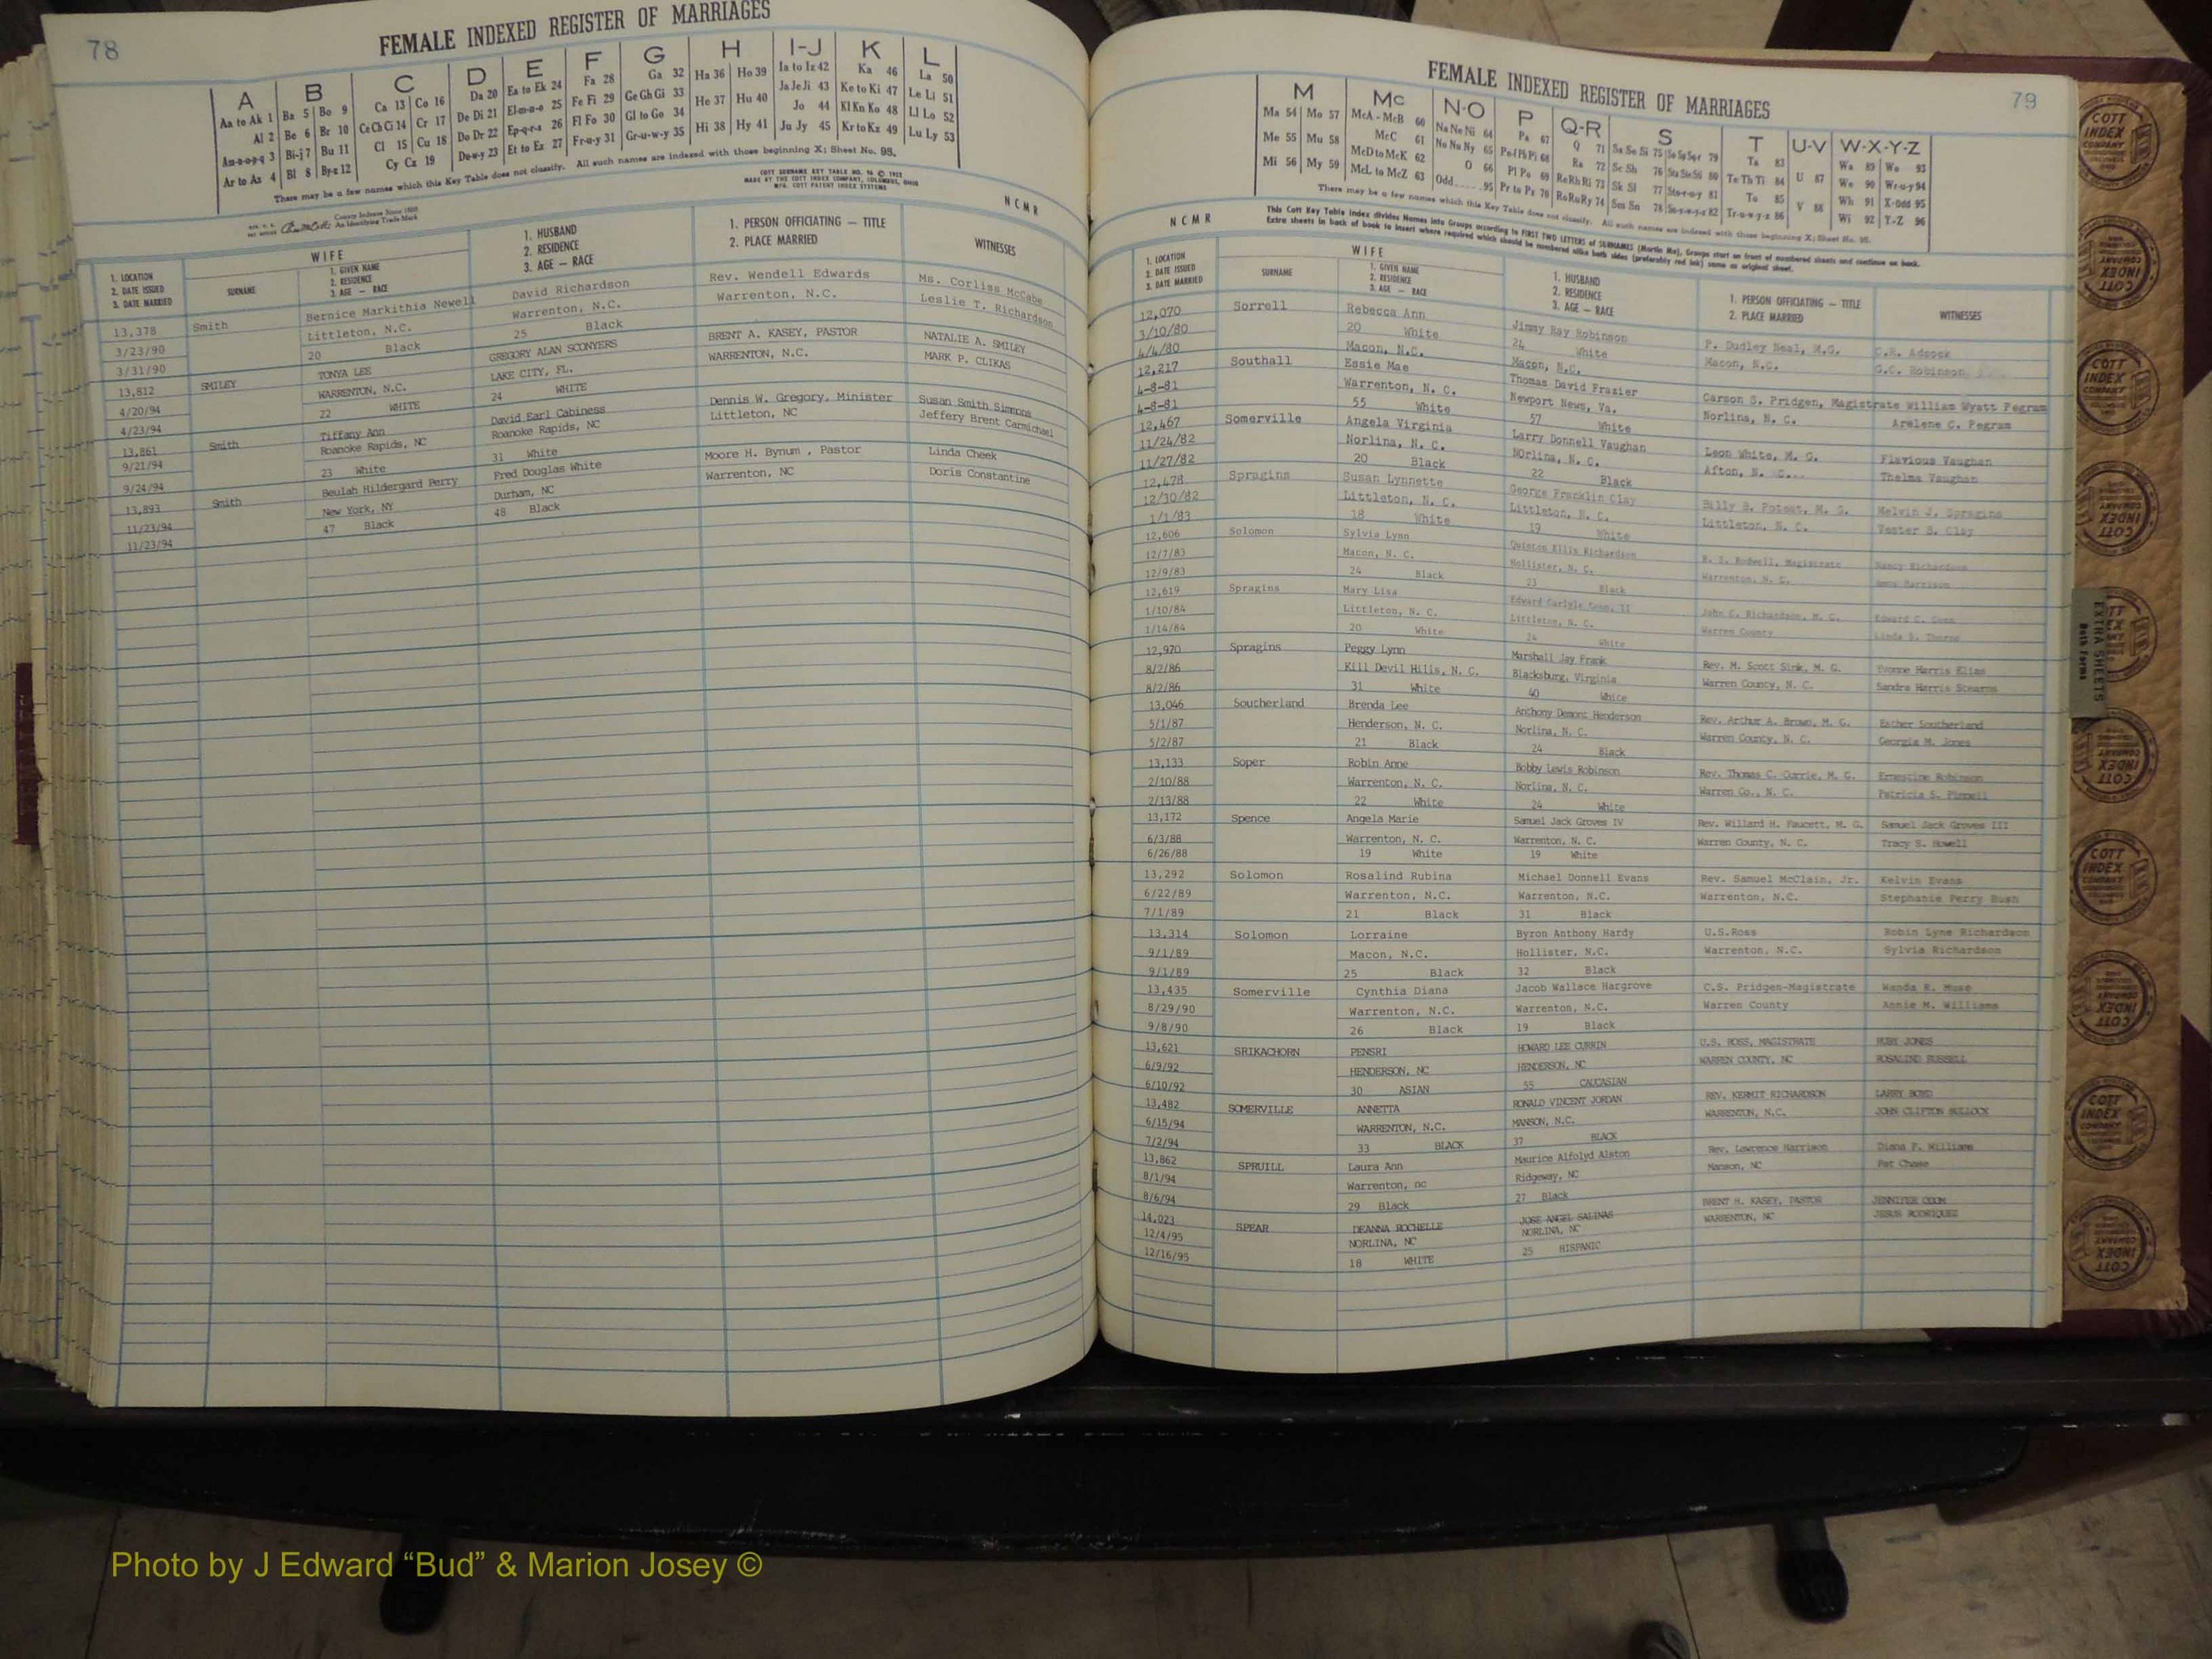 78
FEMALE INDEXED REGISTER OF MARRIAGES
A B C D E F G H I-J K L
Aa to Ak 1 Ba 5 Bo 9 Ca 13 Co 16 Da 20 Ea to Ek 24 Fa 28 Ga 32 Ha 36 Ho 39 Ia to Iz 42 Ka 46 La 50
Al 2 Be 6 Br 10 Ce Ch Ci 14 Cr 17 De Di 21 El-m-n-o 25 Fe Fi 29 Ge Gh Gi 33 He 37 Hu 40 Ja Je Ji 43 Ke to Ki 47 Le Li 51
Am-n-o-p-q 3 Bi-j 7 Bu 11 Cl 15 Cu 18 Do Dr 22 Ep-q-r-s 26 Fl Fo 30 Gl to Go 34 Hi 38 Hy 41 Jo 44 Kl Kn Ko 48 Ll Lo 52
Ar to Az 4 Bl 8 By-z 12 Cy Cz 19 De-w-y 23 Et to Ez 27 Fr-u-y 31 Gr-u-w-y 35 Ju Jy 45 Kr to Kz 49 Lu Ly 53
There may be a few names which this Key Table does not classify. All such names are indexed with those beginning X; Sheet No. 95.
COTT SURNAME KEY TABLE NO. 96 ©
MADE BY THE COTT INDEX COMPANY, COLUMBUS, OHIO
MFG. COTT PATENT INDEX SYSTEMS
County Indexes Since 1888
An Identifying Trade Mark
N C M R
1. LOCATION
2. DATE ISSUED
3. DATE MARRIED
WIFE
SURNAME
1. GIVEN NAME
2. RESIDENCE
3. AGE — RACE
1. HUSBAND
2. RESIDENCE
3. AGE — RACE
1. PERSON OFFICIATING — TITLE
2. PLACE MARRIED
WITNESSES
13,378 Smith Bernice Markithia Newell David Richardson Rev. Wendell Edwards Ms. Corliss McCabe
3/23/90 Littleton, N.C. Warrenton, N.C. Warrenton, N.C. Leslie T. Richardson
3/31/90 20 Black 25 Black
13,812 SMILEY TONYA LEE GREGORY ALAN SCONYERS BRENT A. KASEY, PASTOR NATALIE A. SMILEY
4/20/94 WARRENTON, N.C. LAKE CITY, FL. WARRENTON, N.C. MARK P. CLIKAS
4/23/94 22 WHITE 24 WHITE
13,861 Smith Tiffany Ann David Earl Cabiness Dennis W. Gregory, Minister Susan Smith Simmons
9/21/94 Roanoke Rapids, NC Roanoke Rapids, NC Littleton, NC Jeffery Brent Carmichael
9/24/94 23 White 31 White
13,893 Smith Beulah Hildergard Perry Fred Douglas White Moore H. Bynum , Pastor Linda Cheek
11/23/94 New York, NY Durham, NC Warrenton, NC Doris Constantine
11/23/94 47 Black 48 Black
79
FEMALE INDEXED REGISTER OF MARRIAGES
M Mc N-O P Q-R S T U-V W-X-Y-Z
Ma 54 Mo 57 McA - McB 60 Na Ne Ni 64 Pa 67 Q 71 Sa Se Si 75 So Sp Sq-r 79 Ta 83 U 87 Wa 89 Wo 93
Me 55 Mu 58 McC 61 No Nu Ny 65 Pe-f Ph Pi 68 Ra 72 Sc Sh 76 Sta Ste Sti 80 Te Th Ti 84 V 88 We 90 Wr-u-y 94
Mi 56 My 59 McD to McK 62 O 66 Pl Po 69 Re Rh Ri 73 Sk Sl 77 Sto-r-u-y 81 To 85 Wh 91 X-Odd 95
McL to McZ 63 Odd 95 Pr to Pz 70 Ro Ru Ry 74 Sm Sn 78 Su-v-w-y-z 82 Tr-u-w-y-z 86 Wi 92 Y-Z 96
There may be a few names which this Key Table does not classify. All such names are indexed with those beginning X; Sheet No. 95.
This Cott Key Table Index divides Names into Groups according to FIRST TWO LETTERS of SURNAMES (Martin Ma), Groups start on front of numbered sheets and continue on back.
Extra sheets in back of book to insert where required which should be numbered alike both sides (preferably red ink) same as original sheet.
N C M R
1. LOCATION
2. DATE ISSUED
3. DATE MARRIED
WIFE
SURNAME
1. GIVEN NAME
2. RESIDENCE
3. AGE — RACE
1. HUSBAND
2. RESIDENCE
3. AGE — RACE
1. PERSON OFFICIATING — TITLE
2. PLACE MARRIED
WITNESSES
12,070 Sorrell Rebecca Ann Jimmy Ray Robinson P. Dudley Neal, M.G. C.R. Adcock
3/10/80 20 White 24 White Macon, N.C. G.C. Robinson
4/4/80 Macon, N.C. Macon, N.C.
12,217 Southall Essie Mae Thomas David Frazier Carson S. Pridgen, Magistrate William Wyatt Pegram
4-8-81 Warrenton, N. C. Newport News, Va. Norlina, N. C. Arelene C. Pegram
4-8-81 55 White 57 White
12,467 Somerville Angela Virginia Larry Donnell Vaughan Leon White, M. G. Flavious Vaughan
11/24/82 Norlina, N. C. Norlina, N. C. Afton, N. C. Thelma Vaughan
11/27/82 20 Black 22 Black
12,478 Spragins Susan Lynnette George Franklin Clay Billy B. Poteat, M. G. Melvin J. Spragins
12/30/82 Littleton, N. C. Littleton, N. C. Littleton, N. C. Vester S. Clay
1/1/83 18 White 19 White
12,606 Solomon Sylvia Lynn Quinton Ellis Richardson Rodwell, Magistrate Nancy Richardson
12/7/83 Macon, N. C. Hollister, N. C. Warrenton, N. C. Harrison
12/9/83 24 Black 23 Black
12,619 Spragins Mary Lisa Edward Carlyle Conn, II John C. Richardson, M. G. Edward C. Conn
1/10/84 Littleton, N. C. Littleton, N. C. Warren County Linda S. Thorne
1/14/84 20 White 24 White
12,970 Spragins Peggy Lynn Marshall Jay Frank Rev. M. Scott Sink, M. G. Yvonne Harris Elias
8/2/86 Kill Devil Hills, N. C. Blacksburg, Virginia Warren County, N. C. Sandra Harris Stearns
8/2/86 31 White 40 White
13,046 Southerland Brenda Lee Anthony Demont Henderson Rev. Arthur A. Brown, M. G. Esther Southerland
5/1/87 Henderson, N. C. Norlina, N. C. Warren County, N. C. Georgia M. Jones
5/2/87 21 Black 24 Black
13,133 Soper Robin Anne Bobby Lewis Robinson Rev. Thomas C. Currie, M. G. Ernestine Robinson
2/10/88 Warrenton, N. C. Norlina, N. C. Warren Co., N. C. Patricia S. Pinnell
2/13/88 22 White 24 White
13,172 Spence Angela Marie Samuel Jack Groves IV Rev. Willard H. Faucett, M. G. Samuel Jack Groves III
6/3/88 Warrenton, N. C. Warrenton, N. C. Warren County, N. C. Tracy S. Howell
6/26/88 19 White 19 White
13,292 Solomon Rosalind Rubina Michael Donnell Evans Rev. Samuel McClain, Jr. Kelvin Evans
6/22/89 Warrenton, N.C. Warrenton, N.C. Warrenton, N.C. Stephanie Perry Bush
7/1/89 21 Black 31 Black
13,314 Solomon Lorraine Byron Anthony Hardy U.S.Ross Robin Lyne Richardson
9/1/89 Macon, N.C. Hollister, N.C. Warrenton, N.C. Sylvia Richardson
9/1/89 25 Black 32 Black
13,435 Somerville Cynthia Diana Jacob Wallace Hargrove C.S. Pridgen-Magistrate Wanda R. Muse
8/29/90 Warrenton, N.C. Warrenton, N.C. Warren County Annie M. Williams
9/8/90 26 Black 19 Black
13,621 SRIKACHORN PENSRI HOWARD LEE CURRIN U.S. ROSS, MAGISTRATE RUBY JONES
6/9/92 HENDERSON, NC HENDERSON, NC WARREN COUNTY, NC ROSALIND RUSSELL
6/10/92 30 ASIAN 55 CAUCASIAN
13,482 SOMERVILLE ANNETTA RONALD VINCENT JORDAN REV. KERMIT RICHARDSON LARRY BOYD
6/15/94 WARRENTON, N.C. MANSON, N.C. WARRENTON, N.C. JOHN CLIFTON BULLOCK
7/2/94 33 BLACK 37 BLACK
13,862 SPRUILL Laura Ann Maurice Alfolyd Alston Rev. Lawrence Harrison Diana F. Williams
8/1/94 Warrenton, nc Ridgeway, NC Manson, NC Pat Chase
8/6/94 29 Black 27 Black
14,023 SPEAR DEANNA ROCHELLE JOSE ANGEL SALINAS BRENT H. KASEY, PASTOR JENNIFER ODOM
12/4/95 NORLINA, NC NORLINA, NC WARRENTON, NC JESUS RODRIQUEZ
12/16/95 18 WHITE 25 HISPANIC
EXTRA SHEETS
Both Forms
COTT INDEX COMPANY
Photo by J Edward “Bud” & Marion Josey ©